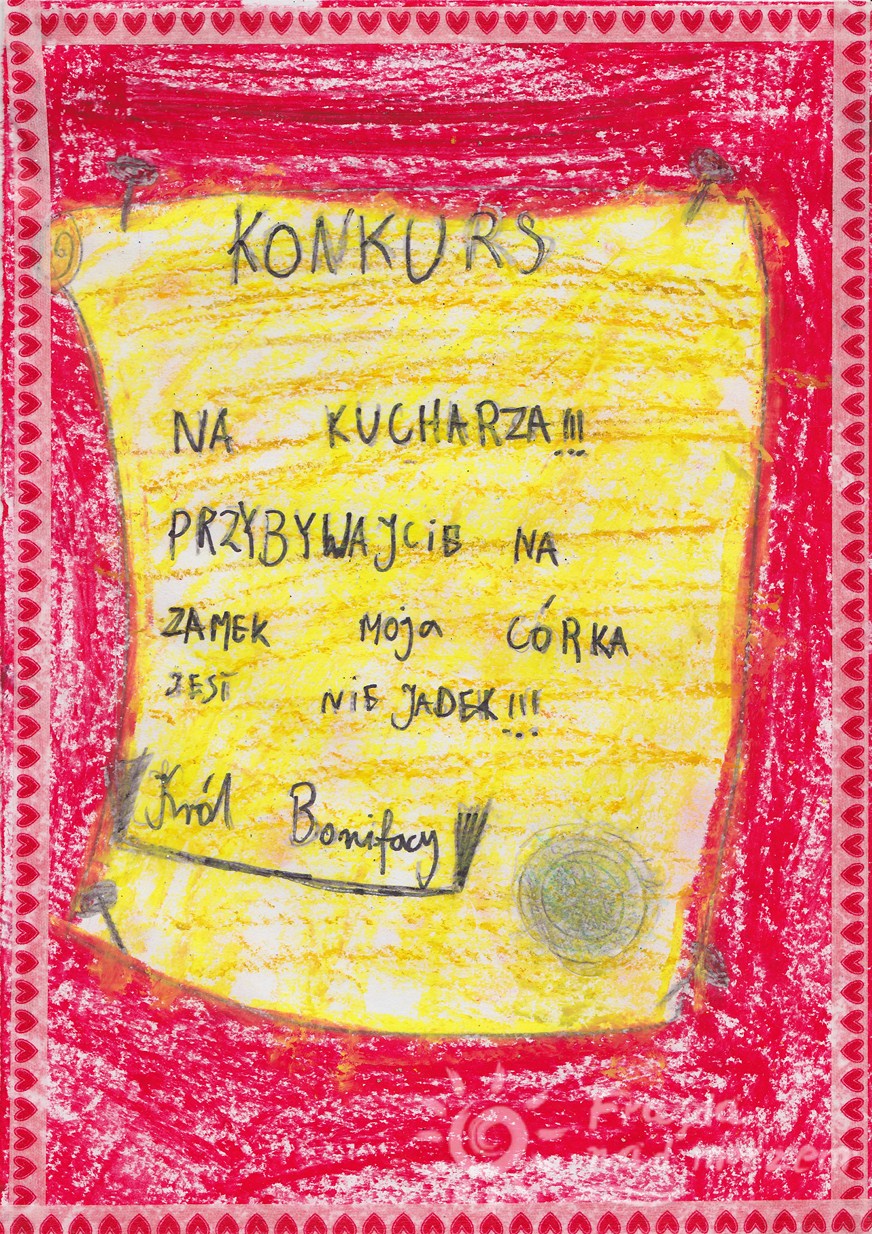 KONKURS
NA KUCHARZA!!!
PRZYBYWAJCiE NA
ZAMEK Moja CÓRKA
JEST NiE JADEK!!!
Król Bonifacy
Frajda
nad morzem